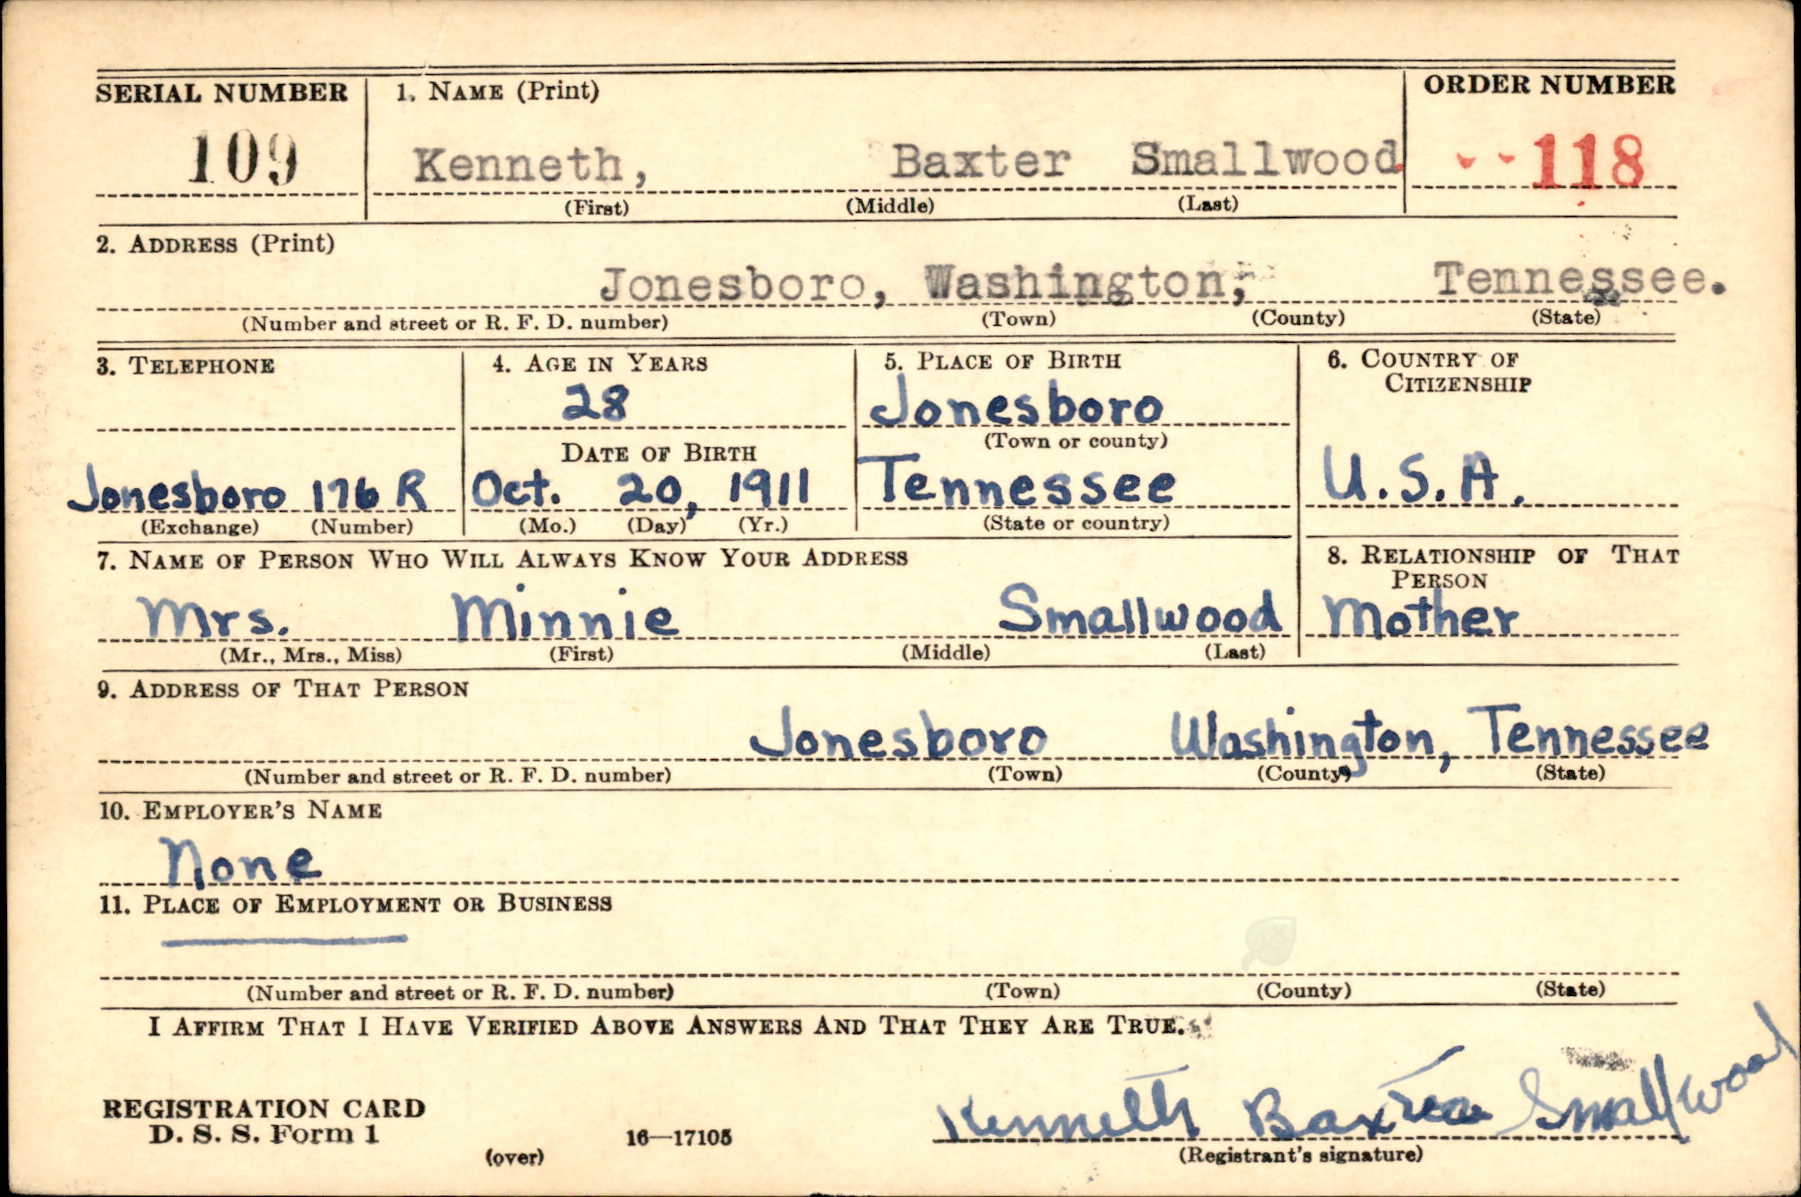 SERIAL NUMBER 1. NAME (Print) ORDER NUMBER
109 Kenneth, Baxter Smallwood 118
(First) (Middle) (Last)
2. ADDRESS (Print)
Jonesboro, Washington, Tennessee.
(Number and street or R. F. D. number) (Town) (County) (State)
3. TELEPHONE 4. AGE IN YEARS 5. PLACE OF BIRTH 6. COUNTRY OF
CITIZENSHIP
28 Jonesboro
DATE OF BIRTH (Town or county)
Jonesboro 176 R Oct. 20, 1911 Tennessee U.S.A.
(Exchange) (Number) (Mo.) (Day) (Yr.) (State or country)
7. NAME OF PERSON WHO WILL ALWAYS KNOW YOUR ADDRESS 8. RELATIONSHIP OF THAT
PERSON
Mrs. Minnie Smallwood Mother
(Mr., Mrs., Miss) (First) (Middle) (Last)
9. ADDRESS OF THAT PERSON
Jonesboro Washington, Tennessee
(Number and street or R. F. D. number) (Town) (County) (State)
10. EMPLOYER'S NAME
None
11. PLACE OF EMPLOYMENT OR BUSINESS
(Number and street or R. F. D. number) (Town) (County) (State)
I AFFIRM THAT I HAVE VERIFIED ABOVE ANSWERS AND THAT THEY ARE TRUE.
REGISTRATION CARD
D. S. S. Form 1 16—17105 Kenneth Baxter Smallwood
(over) (Registrant's signature)